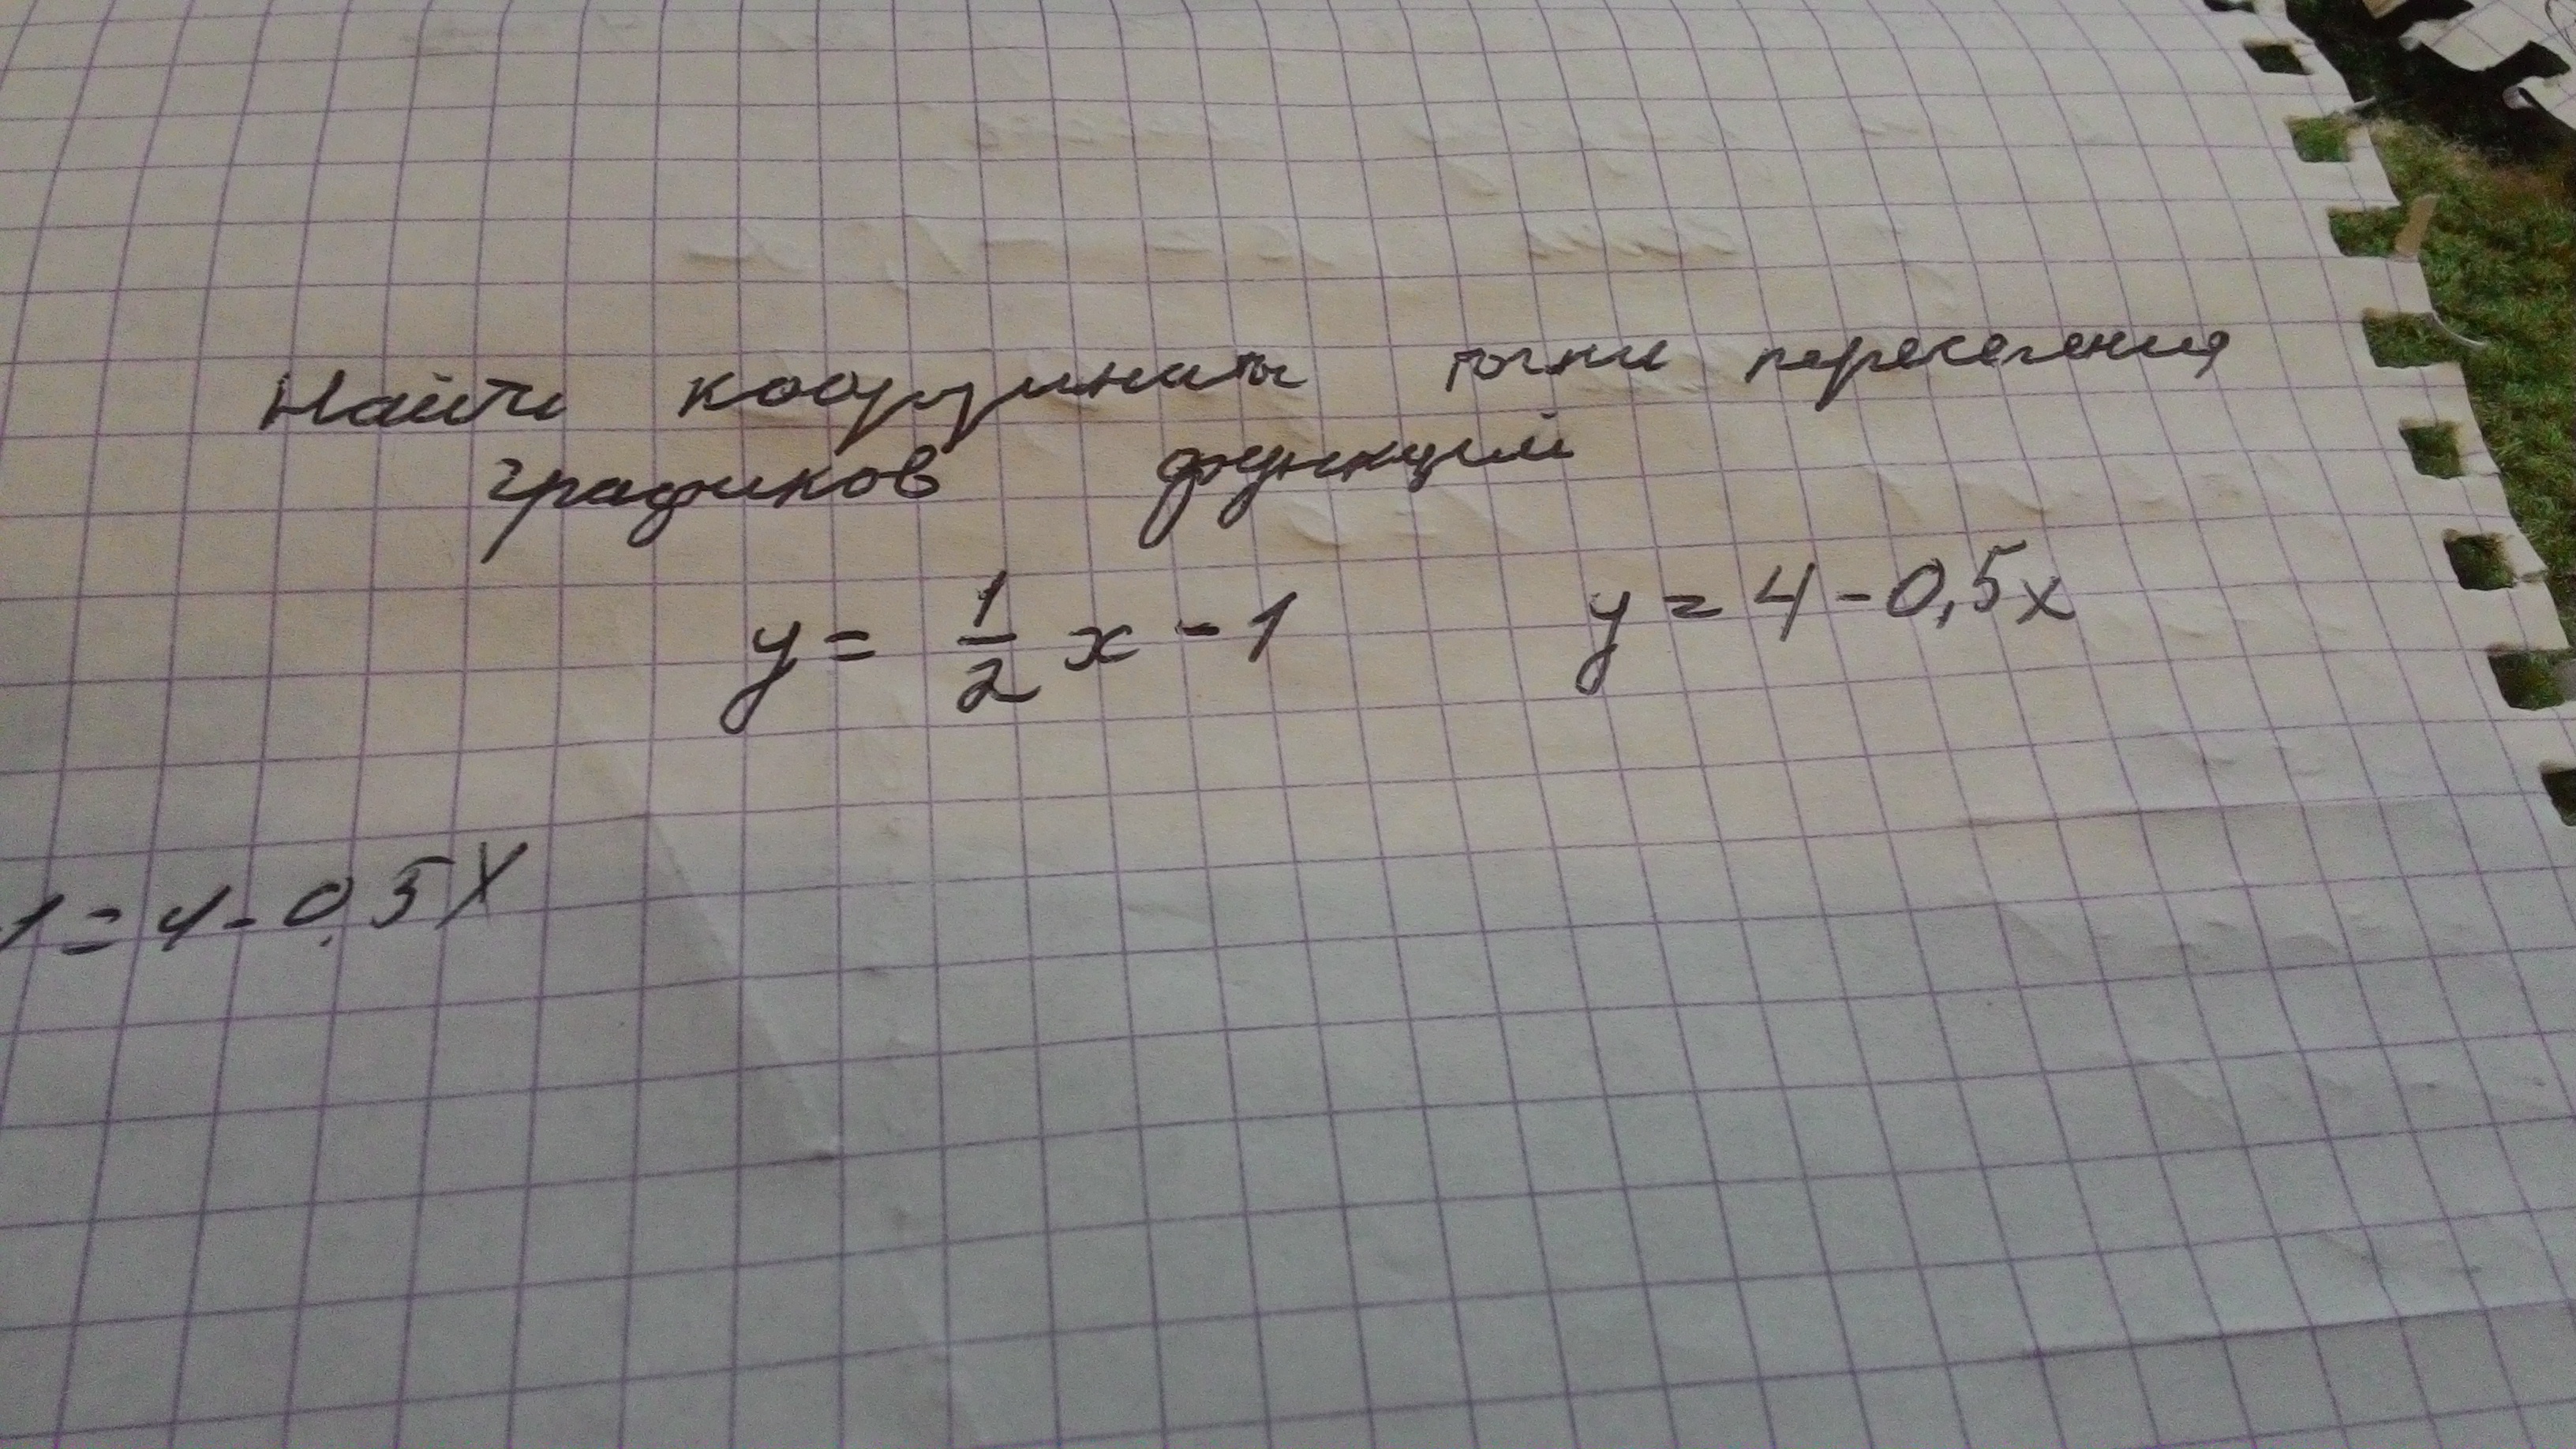 Найти координаты точки пересечения
графиков функций
y = 1/2 x - 1 y = 4 - 0,5x
1 = 4 - 0,5X